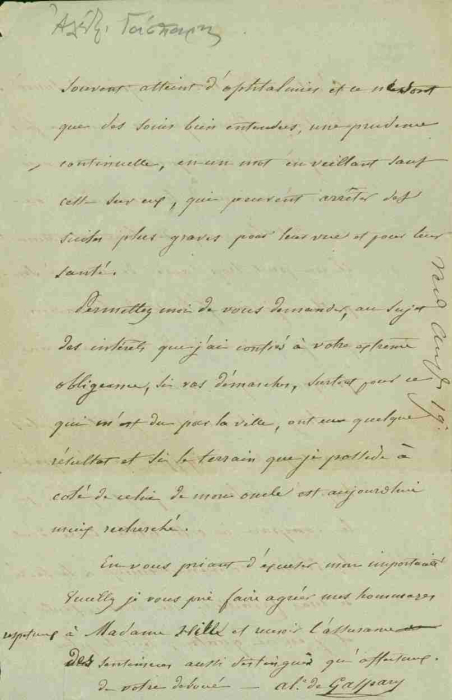 Αλέξ. Γάσπαρη
souvent atteint d'ophtalmies et ce ne sont
que des soins bien entendus, une prudence
continuelle, en un mot en veillant sans
cesse sur eux, qui peuvent arrêter des
suites plus graves pour leur vue et pour leur
santé.
Permettez moi de vous demander, au sujet
des interets que j'ai confiés à votre extrême
obligeance, si vos démarches, surtout pour ce
qui m'est du par la ville, ont eu quelque
résultat et si le terrain que je possède à
coté de celui de mon oncle est aujourd'hui
mieux recherché.
En vous priant d'excuser mon importunité
veuillez je vous prie faire agréer mes hommages
respectueux à Madame Hill et recevoir l'assurance
des sentimens aussi distingués qu'affectueux
de votre dévoué — al. de Gaspary